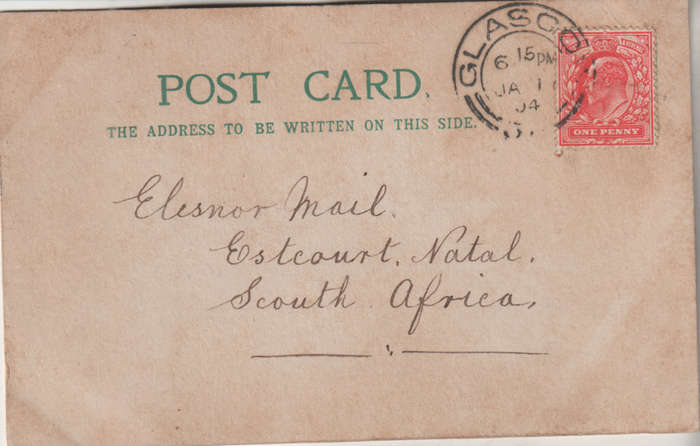 POST CARD.
THE ADDRESS TO BE WRITTEN ON THIS SIDE.
GLASGO
6 15 PM
JA 1
04
ONE PENNY
Elesnor Mail.
Estcourt. Natal.
Scouth Africa,